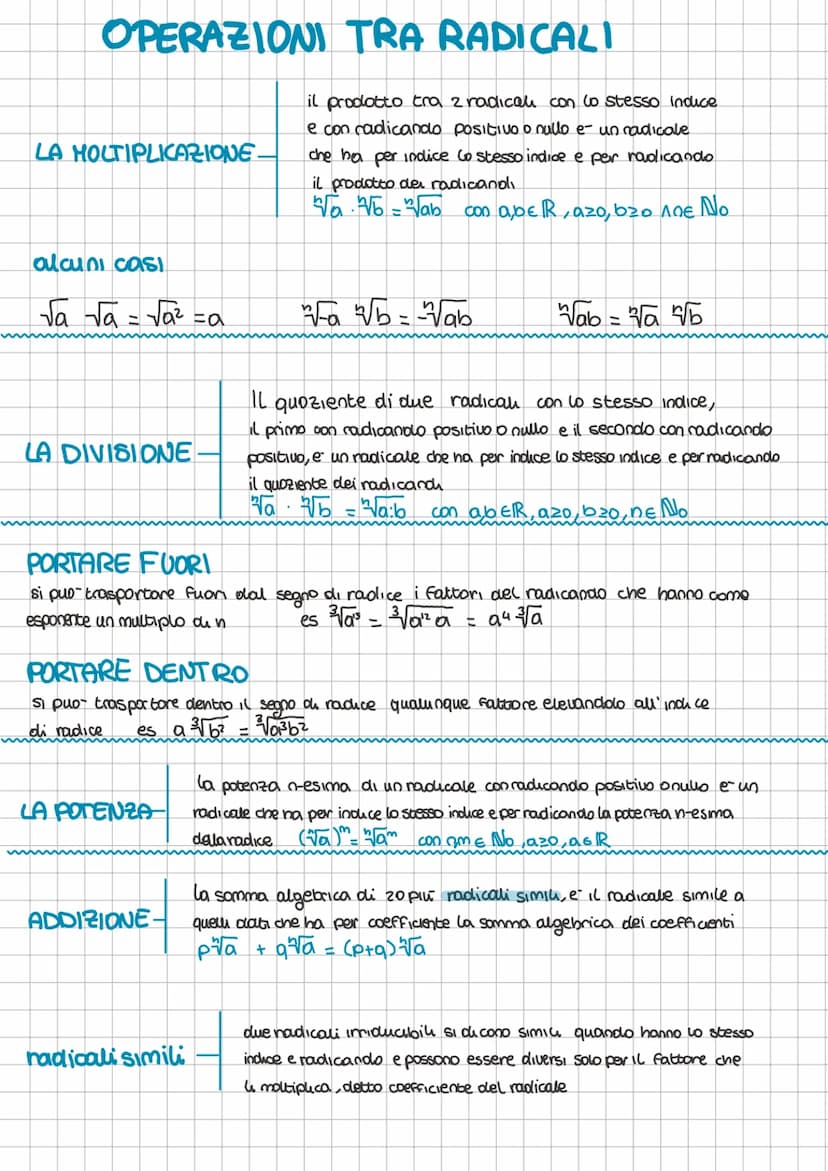 OPERAZIONI TRA RADICALI
il prodotto tra 2 radicali con lo stesso indice
e con radicando positivo o nullo e- un radicale
LA MOLTIPLICAZIONE
che ha per indice lo stesso indice e per radicando
il prodotto dei radicandi
ⁿ√a · ⁿ√b = ⁿ√ab con a,b∈ℝ, a≥0, b≥0 ∧n∈ℕ₀
alcuni casi
√a √a = √a² = a
ⁿ√-a ⁿ√b = -ⁿ√ab
ⁿ√ab = ⁿ√a ⁿ√b
Il quoziente di due radicali con lo stesso indice,
il primo con radicando positivo o nullo e il secondo con radicando
LA DIVISIONE
positivo, e' un radicale che ha per indice lo stesso indice e per radicando
il quoziente dei radicandi
ⁿ√a · ⁿ√b = ⁿ√a:b con a,b∈ℝ, a≥0, b≥0, n∈ℕ₀
PORTARE FUORI
si puo- trasportare fuori dal segno di radice i fattori del radicando che hanno come
esponente un multiplo di n es ³√a¹³ = ³√a¹² a = a⁴ ³√a
PORTARE DENTRO
si puo- trasportare dentro il segno di radice qualunque fattore elevandolo all'indice
di radice es a ³√b² = ³√a³b²
la potenza n-esima di un radicale con radicando positivo o nullo e- un
LA POTENZA
radicale che ha per indice lo stesso indice e per radicando la potenza n-esma
della radice (ⁿ√a)ᵐ = ⁿ√aᵐ con n,m ∈ ℕ₀, a≥0, a∈ℝ
la somma algebrica di 2 o più radicali simili, e' il radicale simile a
ADDIZIONE
quelli dati che ha per coefficiente la somma algebrica dei coefficienti
pⁿ√a + qⁿ√a = (p+q)ⁿ√a
due radicali irriducibili si dicono simili quando hanno lo stesso
radicali simili
indice e radicando e possono essere diversi solo per il fattore che
li moltiplica, detto coefficiente del radicale